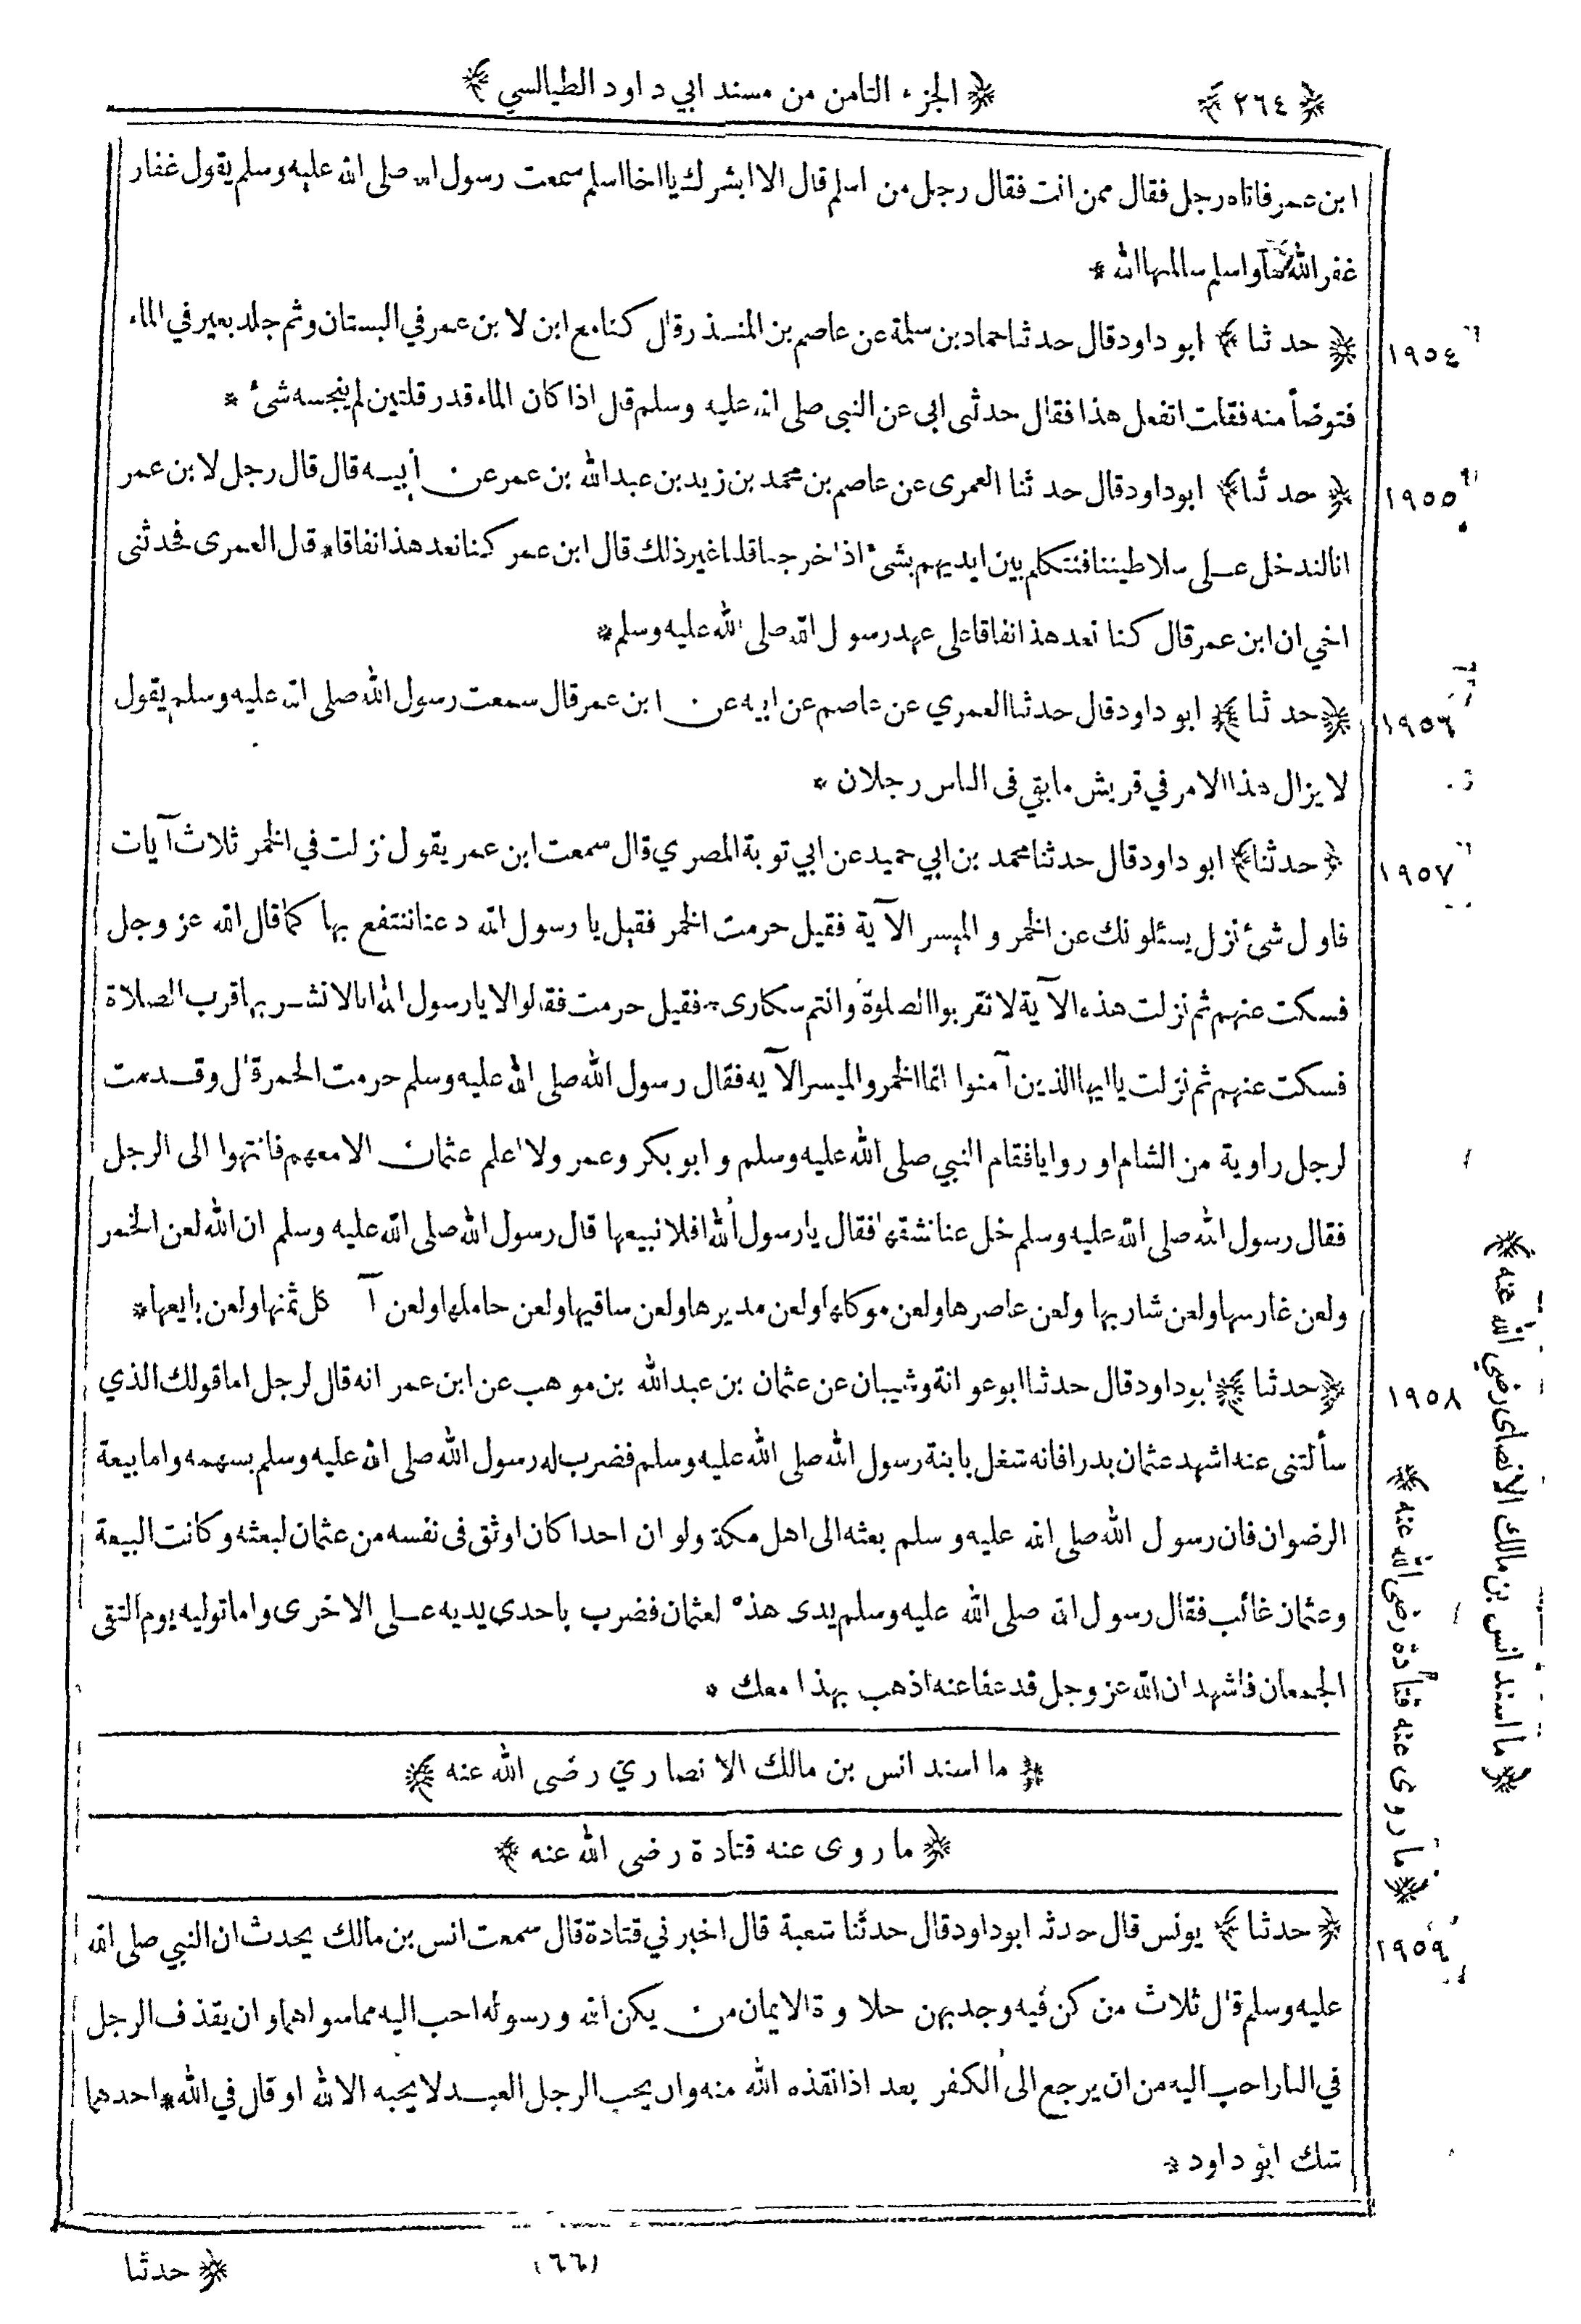 ﴿ ٢٦٤ ﴾
﴿ الجزء الثامن من مسند ابي داود الطيالسي ﴾
ابن عمر فاتاه رجل فقال ممن انت فقال رجل من اسلم قال الا ابشرك يا اخا اسلم سمعت رسول الله صلى الله عليه وسلم يقول غفار
غفر الله لها واسلم سالمها الله *
١٩٥٤ ﴿ حدثنا ﴾ ابو داود قال حدثنا حماد بن سلمة عن عاصم بن المنذر قال كنا مع ابن لابن عمر في البستان وثم جلد بعير في الماء
فتوضأ منه فقلت اتفعل هذا فقال حدثنى ابى عن النبى صلى الله عليه وسلم قال اذا كان الماء قدر قلتين لم ينجسه شئ *
١٩٥٥ ﴿ حدثنا ﴾ ابو داود قال حدثنا العمرى عن عاصم بن محمد بن زيد بن عبد الله بن عمر عن أبيه قال قال رجل لابن عمر
انا لندخل على سلاطيننا فنتكلم بين ايديهم بشئ اذا خرجنا قلنا غير ذلك قال ابن عمر كنا نعد هذا نفاقا * قال العمرى فحدثنى
اخي ان ابن عمر قال كنا نعد هذا نفاقا على عهد رسول الله صلى الله عليه وسلم *
١٩٥٦ ﴿ حدثنا ﴾ ابو داود قال حدثنا العمري عن عاصم عن ابيه عن ابن عمر قال سمعت رسول الله صلى الله عليه وسلم يقول
لا يزال هذا الامر في قريش ما بقي فى الناس رجلان *
١٩٥٧ ﴿ حدثنا ﴾ ابو داود قال حدثنا محمد بن ابي حميد عن ابي توبة المصري قال سمعت ابن عمر يقول نزلت في الخمر ثلاث آيات
فاول شئ نزل يسئلونك عن الخمر و الميسر الآية فقيل حرمت الخمر فقيل يا رسول الله دعنا ننتفع بها كما قال الله عز وجل
فسكت عنهم ثم نزلت هذه الآية لا تقربوا الصلوة وانتم سكارى فقيل حرمت فقالوا لا يا رسول الله انا لا نشربها قرب الصلاة
فسكت عنهم ثم نزلت يا ايها الذين آمنوا انما الخمر والميسر الآيه فقال رسول الله صلى الله عليه وسلم حرمت الخمر قال وقدمت
لرجل راوية من الشام او روايا فقام النبي صلى الله عليه وسلم و ابو بكر وعمر ولا اعلم عثمان الا معهم فانتهوا الى الرجل
فقال رسول الله صلى الله عليه وسلم خل عنا نشقها فقال يا رسول الله افلا نبيعها قال رسول الله صلى الله عليه وسلم ان الله لعن الخمر
ولعن غارسها ولعن شاربها ولعن عاصرها ولعن موكلها ولعن مديرها ولعن ساقيها ولعن حاملها ولعن آكل ثمنها ولعن بايعها *
١٩٥٨ ﴿ حدثنا ﴾ ابو داود قال حدثنا ابو عوانة وشيبان عن عثمان بن عبد الله بن موهب عن ابن عمر انه قال لرجل اما قولك الذي
سألتنى عنه اشهد عثمان بدرا فانه شغل بابنة رسول الله صلى الله عليه وسلم فضرب له رسول الله صلى الله عليه وسلم بسهمه واما بيعة
الرضوان فان رسول الله صلى الله عليه وسلم بعثه الى اهل مكة ولو ان احدا كان اوثق فى نفسه من عثمان لبعثه وكانت البيعة
وعثمان غائب فقال رسول الله صلى الله عليه وسلم يدى هذه لعثمان فضرب باحدى يديه على الاخرى واما توليه يوم التقى
الجمعان فاشهد ان الله عز وجل قد عفا عنه اذهب بهذا معك *
﴿ ما اسند انس بن مالك الانصاري رضى الله عنه ﴾
﴿ ما روى عنه قتادة رضى الله عنه ﴾
١٩٥٩ ﴿ حدثنا ﴾ يونس قال حدثنا ابو داود قال حدثنا شعبة قال اخبرني قتادة قال سمعت انس بن مالك يحدث ان النبي صلى الله
عليه وسلم قال ثلاث من كن فيه وجد بهن حلاوة الايمان من يكن الله و رسوله احب اليه مما سواهما و ان يقذف الرجل
في النار احب اليه من ان يرجع الى الكفر بعد اذ انقذه الله منه وان يحب الرجل العبد لا يحبه الا لله او قال في الله * احدهما
شك ابو داود *
﴿ ما اسند انس بن مالك الانصارى رضي الله عنه ﴾
﴿ ما روى عنه قتادة رضى الله عنه ﴾
(٦٦)
﴿ حدثنا